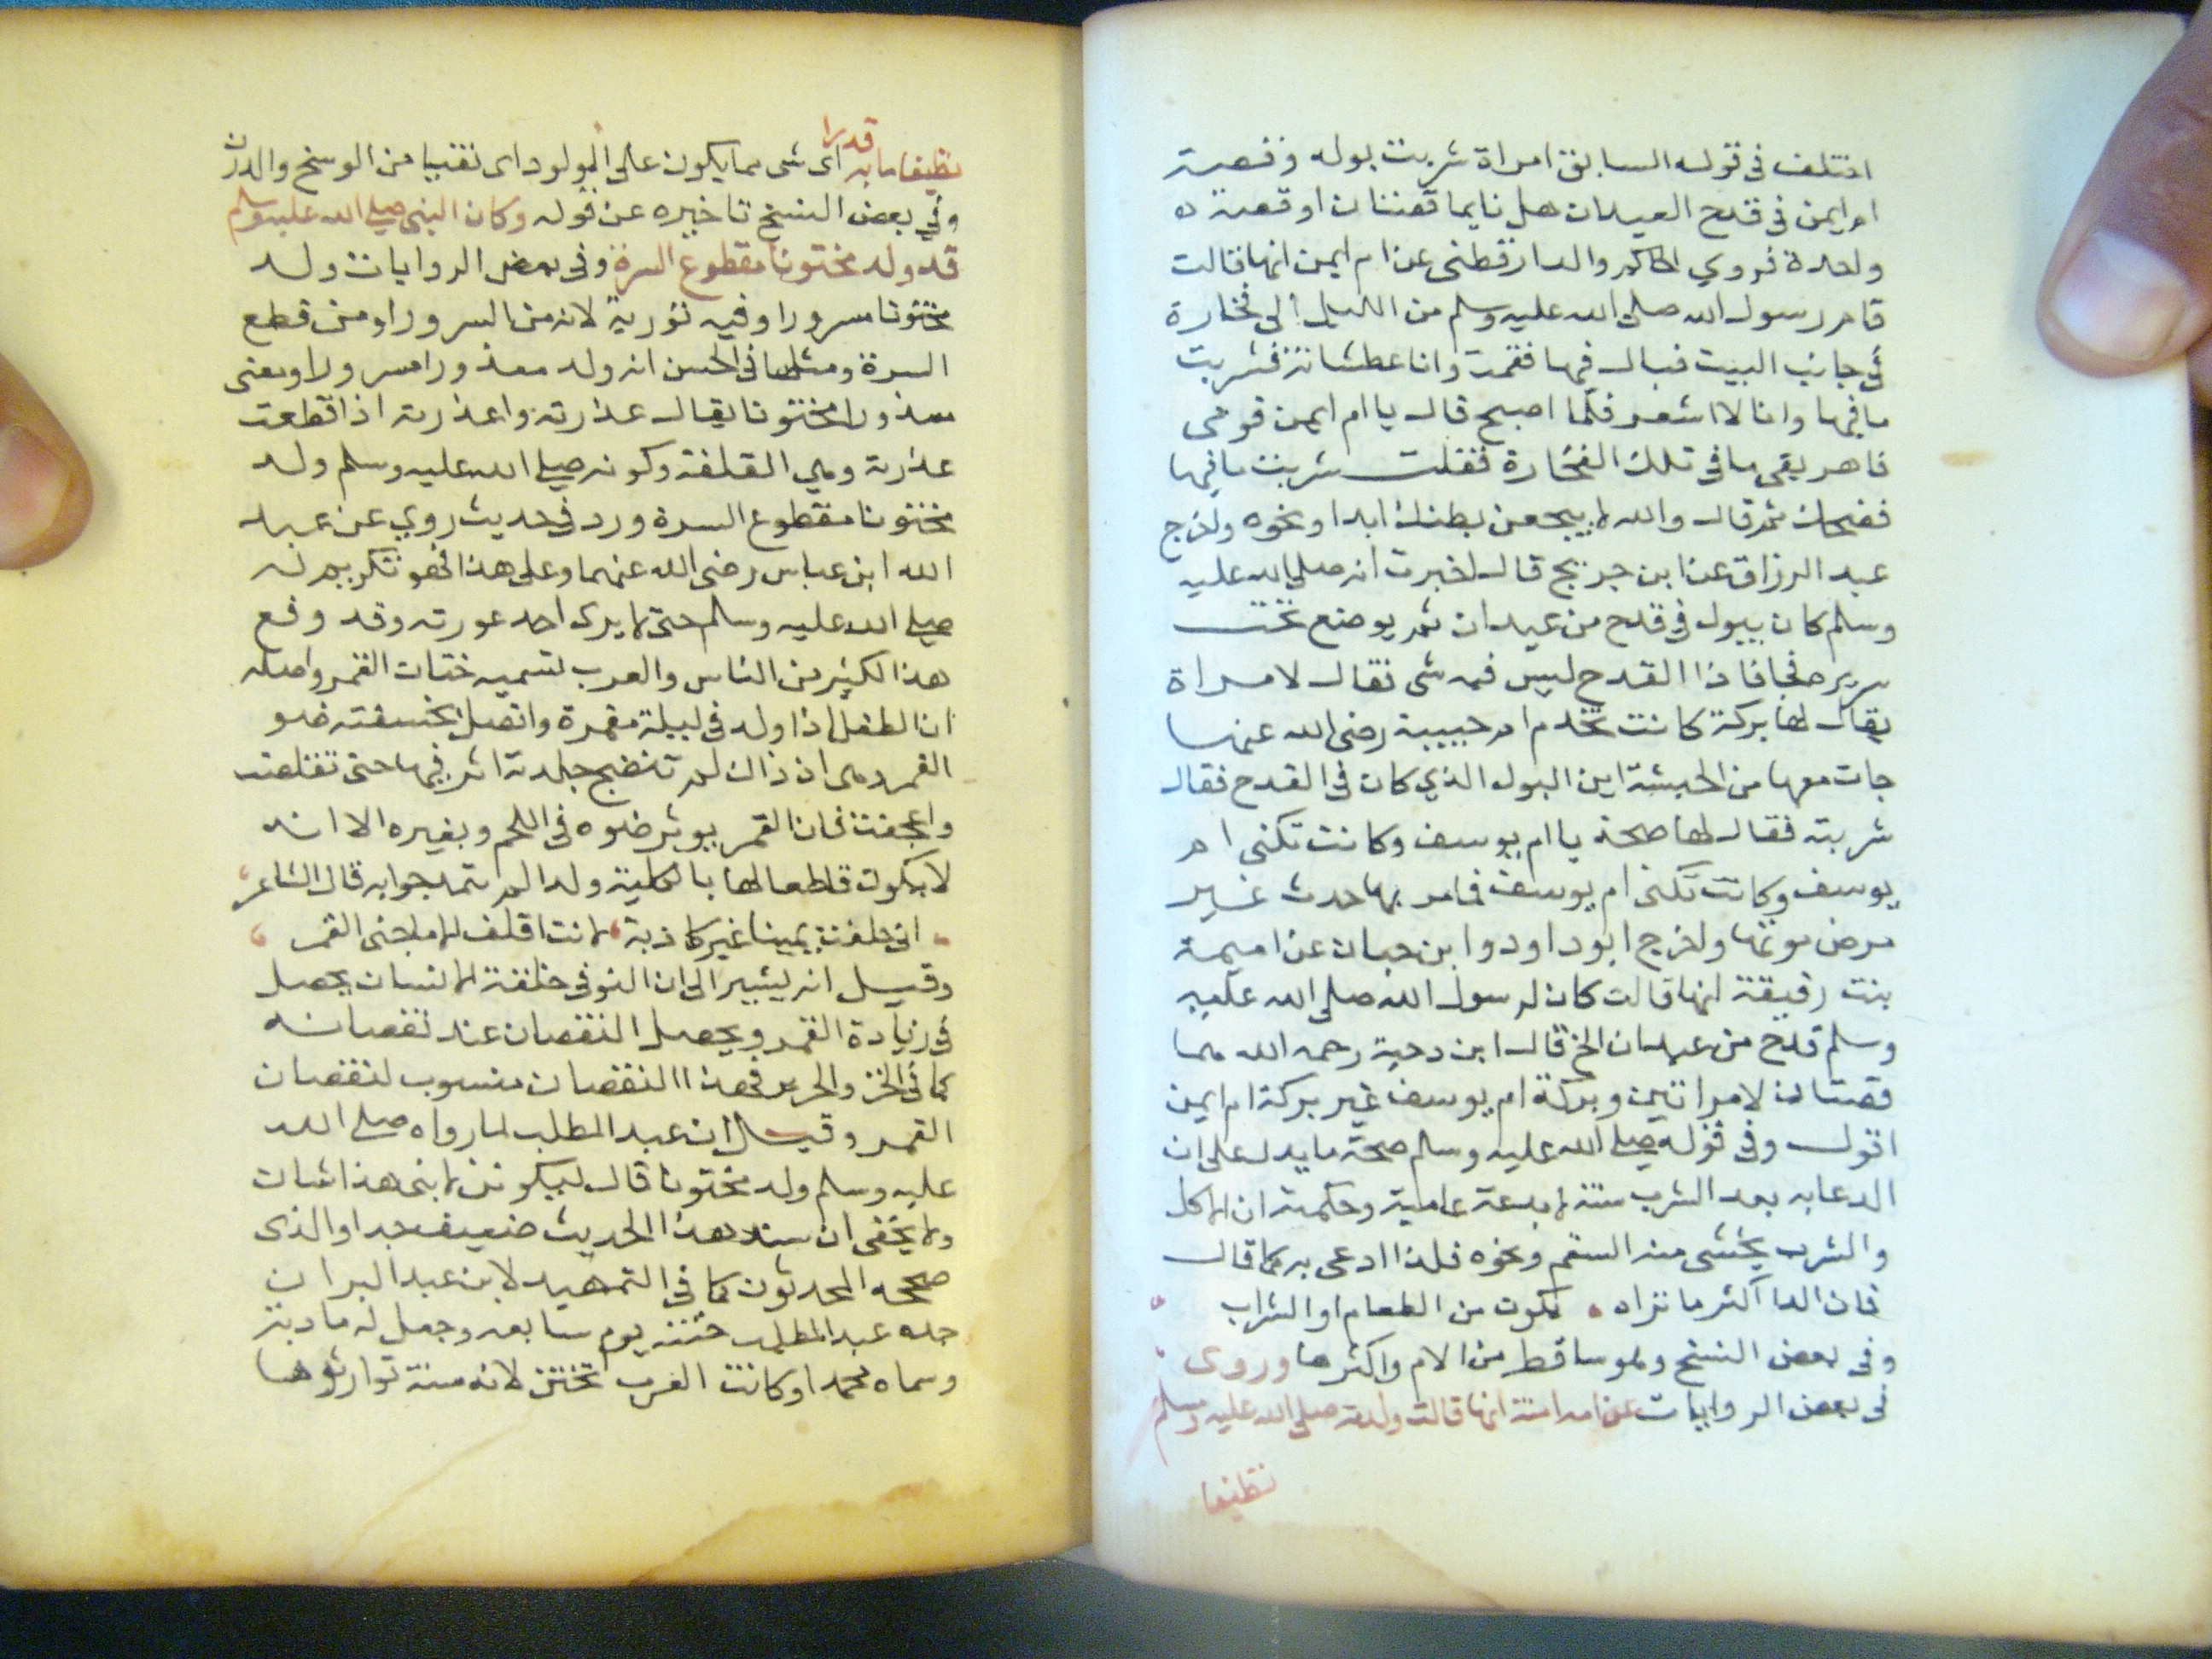 اختلف في قوله السابق امراة شربت بوله وقصة
ام ايمن في قدح العيدان هل نايما قصتان او قصة
واحدة فروي الحاكم والدارقطني عن ام ايمن انها قالت
قام رسول الله صلى الله عليه وسلم من الليل الى فخارة
في جانب البيت فبال فيها فقمت وانا عطشانة فشربت
ما فيها وانا لا اشعر فلما اصبح قال يا ام ايمن قومى
فاهريقى ما في تلك الفخارة فقلت شربت ما فيها
فضحك ثم قال والله لا يبجعن بطنك ابدا ونحوه واخرج
عبد الرزاق عن ابن جريج قال اخبرت انه صلى الله عليه
وسلم كان يبول في قدح من عيدان ثم يوضع تحت
سريره فجا فاذا القدح ليس فيه شى فقال لامراة
يقال لها بركة كانت تخدم ام حبيبة رضى الله عنها
جات معها من الحبشة اين البول الذي كان في القدح فقال
شربته فقال لها صحة يا ام يوسف وكانت تكنى ام
يوسف وكانت تكنى ام يوسف فما مر بها حدث غير
مرض موتها واخرج ابو داود وابن حبان عن اميمة
بنت رقيقة انها قالت كان لرسول الله صلى الله عليه
وسلم قدح من عيدان الخ قال ابن دحية رحمه الله هما
قصتان لامراتين وبركة ام يوسف غير بركة ام ايمن
اقول وفي قوله صلى الله عليه وسلم صحة ما يدل على ان
الدعا به بعد الشرب سنة لا بدعة عامية وحكمته ان الاكل
والشرب يخشى منه السقم ونحوه فلذا ادعى به كما قال
فان الدا اكثر ما تراه يكون من الطعام او الشراب
وفي بعض النسخ وهو ساقط من الام واكثرها وروى
في بعض الروايات عن امه امنة انها قالت ولدته صلى الله عليه وسلم
نظيفا
نظيفا ما به قذرا اى شى مما يكون على المولود اى نقيا من الوسخ والدرن
وفي بعض النسخ تاخيره عن قوله وكان النبى صلى الله عليه وسلم
قد ولد مختونا مقطوع السرة وفي بعض الروايات ولد
مختونا مسرورا وفيه تورية لانه من السرور او من قطع
السرة ومثلها في الحسن انه ولد معذورا مسرورا ومعنى
معذورا مختونا يقال عذرته واعذرته اذا قطعت
عذرته وهي القلفة وكونه صلى الله عليه وسلم ولد
مختونا مقطوع السرة ورد في حديث روي عن عبد
الله ابن عباس رضى الله عنهما وعلى هذا فهو تكريم له
صلى الله عليه وسلم حتى لا يرى احد عورته وقد وقع
هذا لكثير من الناس والعرب تسميه ختان القمر واصله
ان الطفل اذا ولد في ليلة مقمرة واتصل بحشفته ضو
القمر وهى اذ ذاك لم تنضج جلدته اثر فيها حتى تقلصت
وانجفت فان القمر يوثر ضوه في اللحم وبغيره الا انه
لا يكون قاطعا لها بالكلية ولذا لم تمدح به قال الشاعر
انى حلفت يمينا غير كاذبة لانت اقلف الا ما جنى القمر
وقيل انه يشير الى ان النمو في خلقة الانسان يحصل
في زيادة القمر ويحصل النقصان عند نقصانه
كما في الجزر والمد فهذا النقصان منسوب لنقصان
القمر وقيل ان عبد المطلب لما رواه صلى الله
عليه وسلم ولد مختونا قال ليكونن لابنى هذا شان
ولا يخفى ان سند هذا الحديث ضعيف جدا والذى
صححه المحدثون كما في التمهيد لابن عبد البر ان
جده عبد المطلب ختنه يوم سابعه وجعل له مادبة
وسماه محمدا وكانت العرب تختتن لانه سنة توارثوها